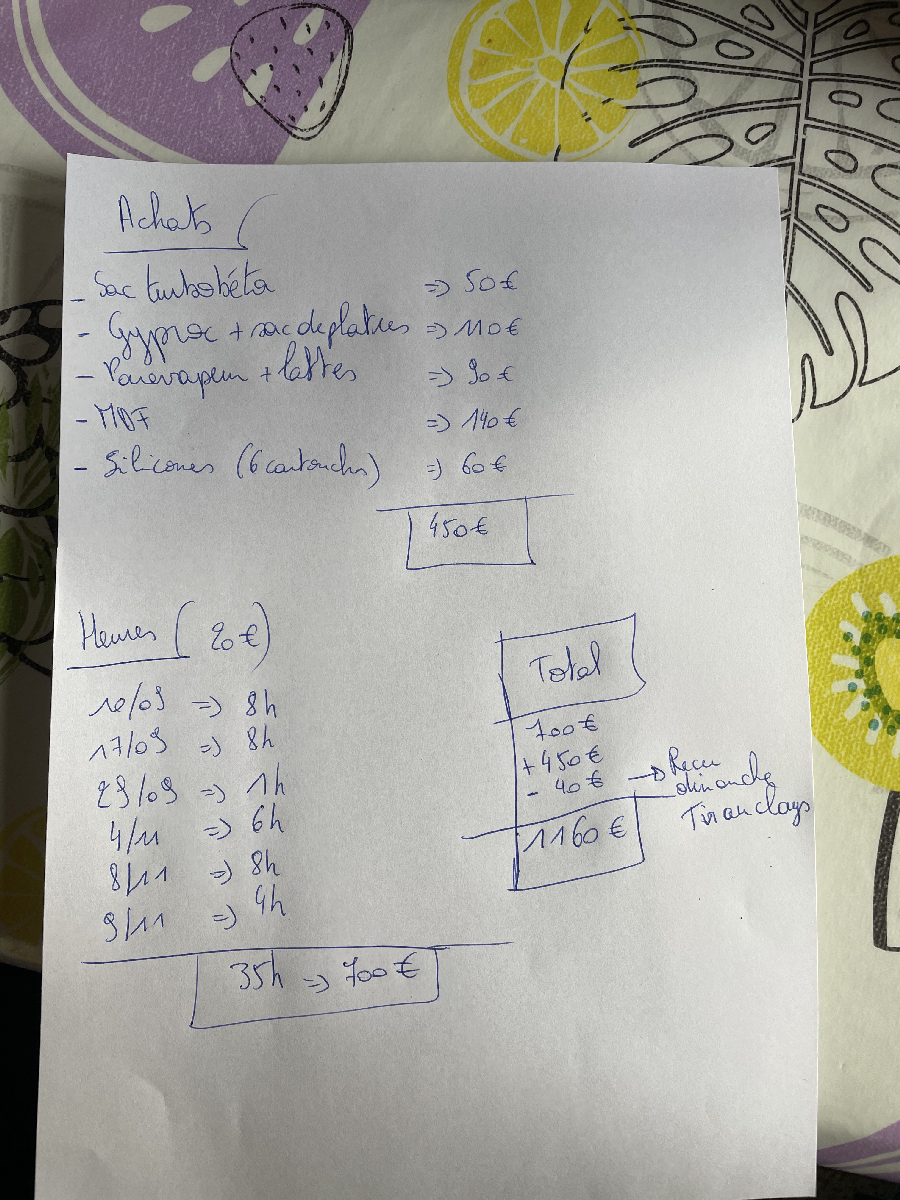 Achats
- Sac turbobéta => 50 €
- Gyproc + sac de platres => 110 €
- Parevapeur + lattes => 90 €
- MDF => 140 €
- Silicones (6 cartouches) => 60 €
450 €
Heures (20 €)
10/09 => 8h
17/09 => 8h
29/09 => 1h
4/11 => 6h
8/11 => 8h
9/11 => 4h
35h => 700 €
Total
700 €
+ 450 €
- 40 € -> Recu
dimanche
1160 €